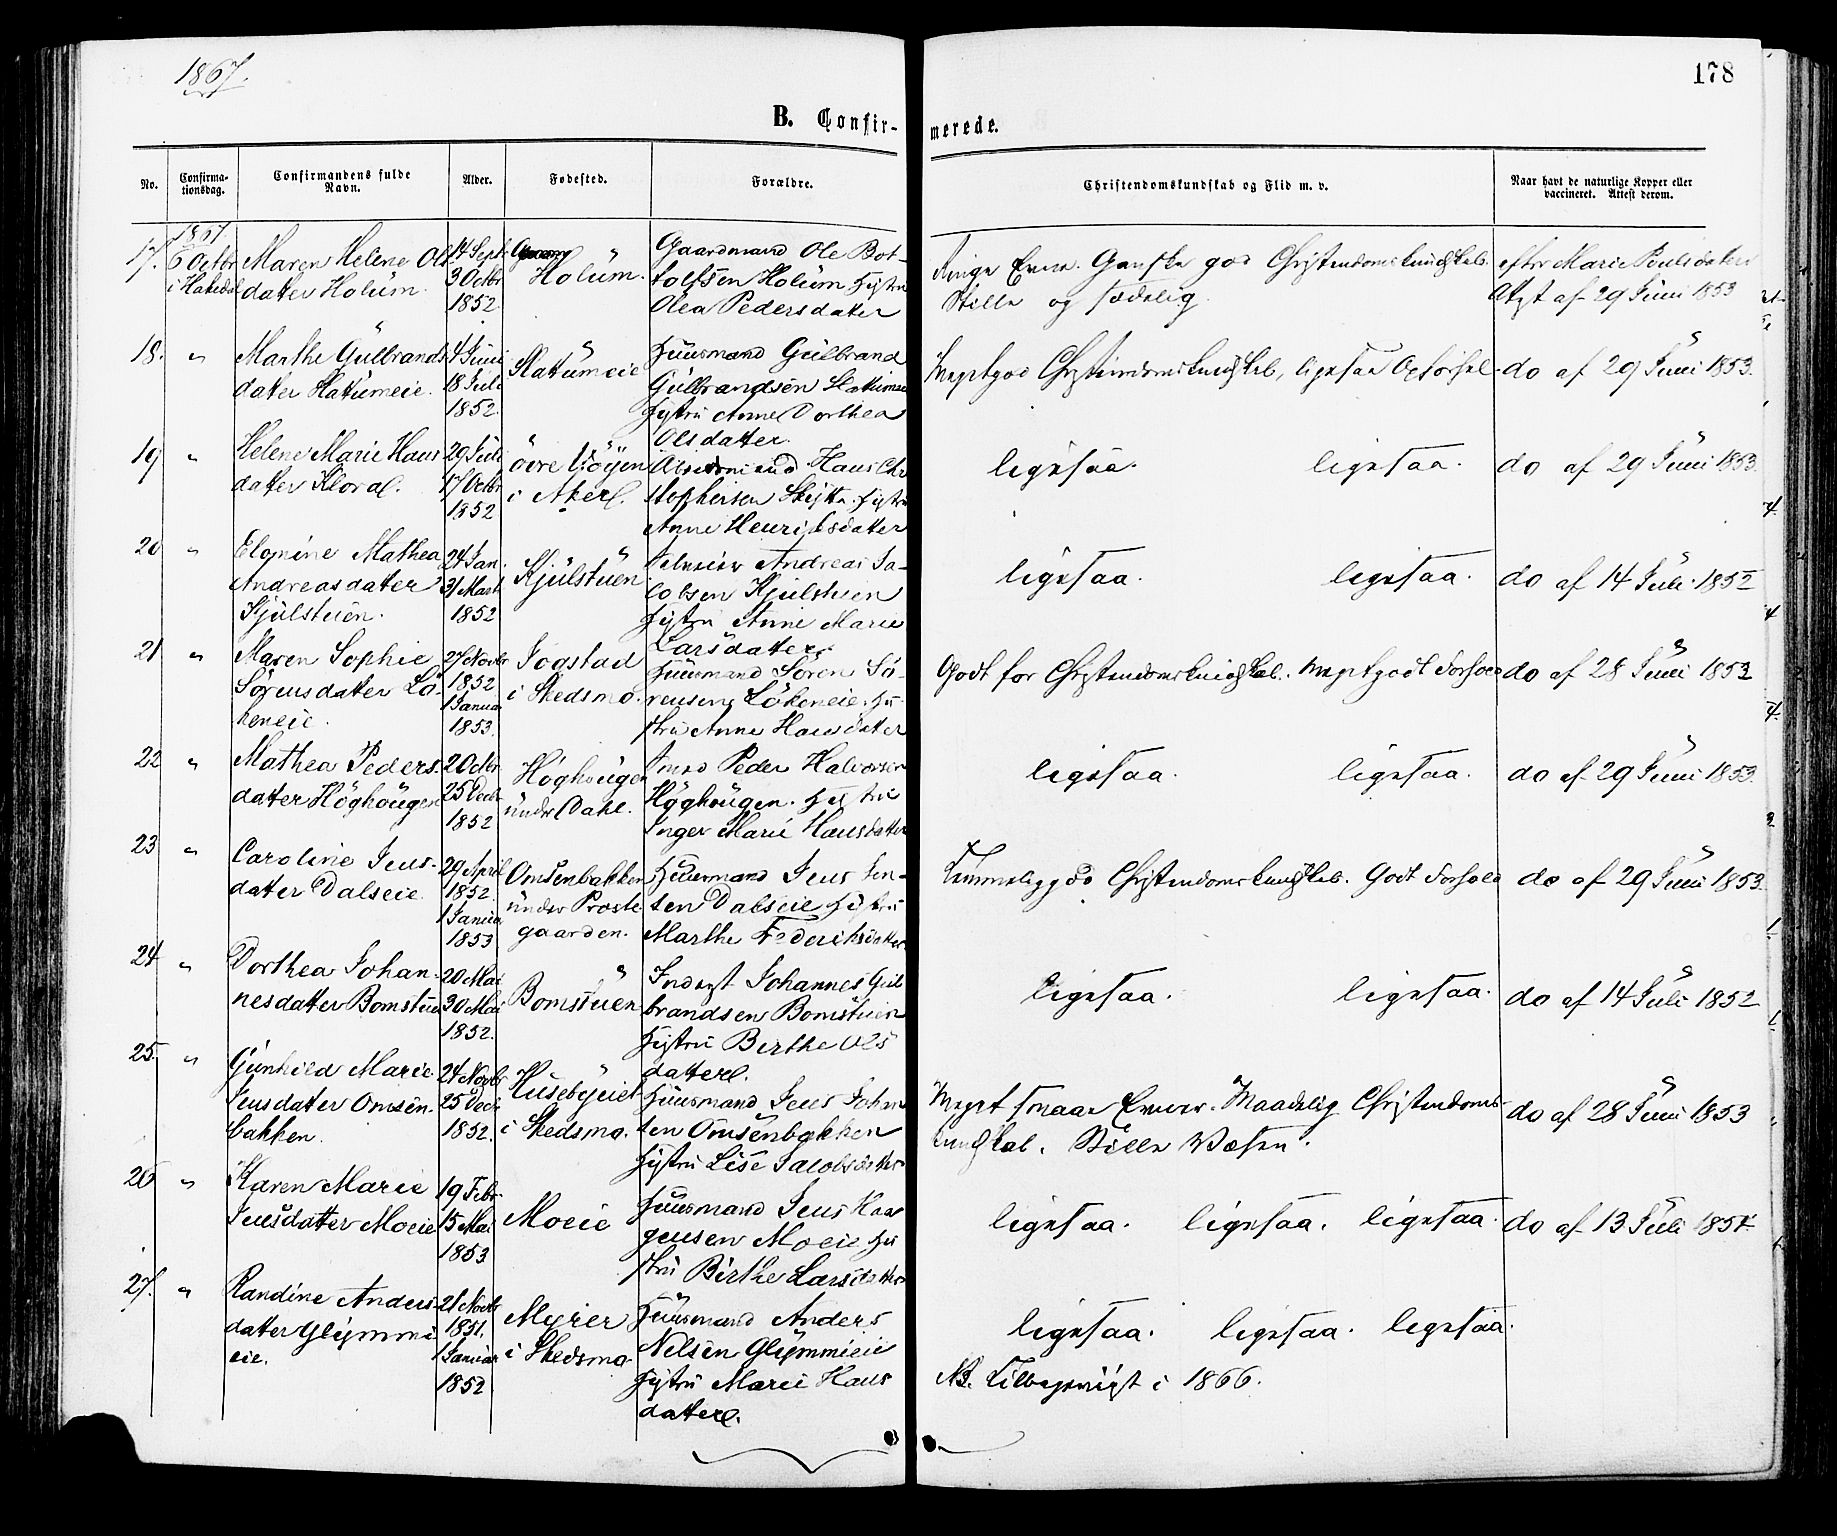 1867.
178
B. Confir-
merede.
No.
Confirma-
tionsdag.
Confirmandens fulde
Navn.
Alder.
Fødested.
Forældre.
Christendomskundskab og Flid m. v.
Naar havt de naturlige Kopper eller
vaccineret. Attest derom.
17. 1867. 6 Octbr i Hakedal
Maren Helene Ols
datter Holum.
14 Sept.
3 Octbr
1852.
Holum.
Gaardmand Ole Bot-
tolfsen Holum Hustru
Olea Pedersdatter
Ringe Evner. Ganske god Christendomskundskab.
Stille og sædelig.
efter Marie Poulsdatters
Atgt af 29 Juni 1853
18. "
Marthe Gulbrands
datter Hatumeie.
4 Juni
18 Juli
1852.
Hatumeie
Huusmand Gulbrand
Gulbrandsen
Hustru Anne Dorthea
Olsdatter.
Megetgod Christendomskundskab, ligesaa Opførsel.
do af 29 Juni 1853.
19 "
Helene Marie Hans
datter
29 Juli
17 Octbr
1852
övre
i Aker.
Hans Chr
stophersen Hustru
Anne Henriksdatter
ligesaa. ligesaa.
do af 29 Juni 1853.
20 "
Elomine Mathea
Andreasdatter
Kjulstuen.
24 Jan.
31 Marts
1852
Kjulstuen
Andreas Ja-
cobsen Kjulstuen
Hustru Anne Marie
Larsdatter.
ligesaa. ligesaa.
do af 14 Juli 1852
21 "
Maren Sophie
Sörensdatter Lö-
keneie.
27 Novbr
1852
1 Januar
1853.
Jogstad
i Skedsmo.
Huusmand Sören Sö-
rensen Lökeneie. Hu-
stru Anne Hansdatter
Godt for Christendomskundskab. Megetgodt Forhold
do af 28 Juni 1853
22 "
Mathea Peders-
datter Höghougen
2 Octbr
25 Decbr
1852
Höghougen
under Dahl.
Peder Halvorsen
Höghougen. Hustru
Inger Marie Hansdatter
ligesaa. ligesaa.
do af 29 Juni 1853.
23 "
Caroline Jens-
datter Dalseie
29 April
1852.
1 Januar
1853
Omsenbakken
under Preste-
gaarden.
Huusmand Jens Jen-
sen Dalseie Hustru
Marthe Frederiksdatter
Temmeliggod Christendomskundskab. Godt Forhold
do af 29 Juni 1853.
24 "
Dorthea Johan-
nesdatter Bomstuen
20 Mai
30 Mai
1852.
Bomstuen
Johannes Gul
brandsen Bomstuen
Hustru Birthe Ols
datter.
ligesaa. ligesaa.
do af 14 Juli 1852
25. "
Gunhild Marie
Jensdatter Omsen-
bakken.
24 Novbr
25 Decbr
1852.
Husebyeiet
i Skedsmo.
Huusmand Jens Johan
sen Omsenbakken
Hustru Lise Jacobsdatter
Meget smaae Evner. Maadelig Christendoms-
kundskab. Stille Væsen.
do af 28 Juni 1853
26 "
Karen Marie
Jensdatter Moeie
19 Febr.
15 Mai
1853
Moeie
Huusmand Jens Haa
gensen Moeie Hu
stru Birthe Larsdatter
ligesaa. ligesaa. ligesaa.
do af 13 Juli 1854.
27. "
Randine Anders-
datter Glymmi
eie.
21 Novbr
1851.
1 Januar
1852
Myrer
i Skedsmo.
Huusmand Anders
Nelsen Glymmieie
Hustru Marie Hans
datter.
ligesaa. ligesaa. ligesaa.
NB. Tilbageviist i 1866.